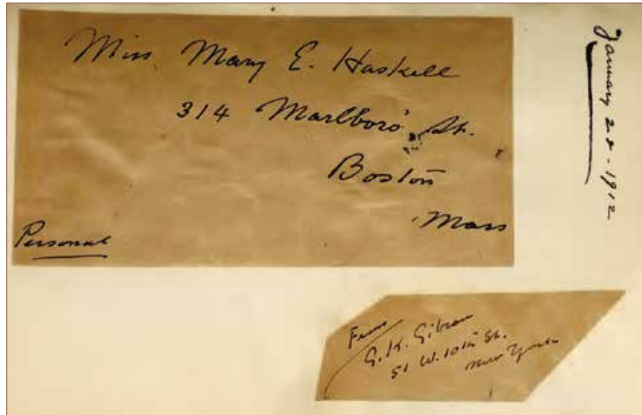 Miss Mary E. Haskell
314 Marlboro' St.
Boston
Mass
Personal
January 28 - 1912
From
G. K. Gibran
51 W. 10th St.
New York